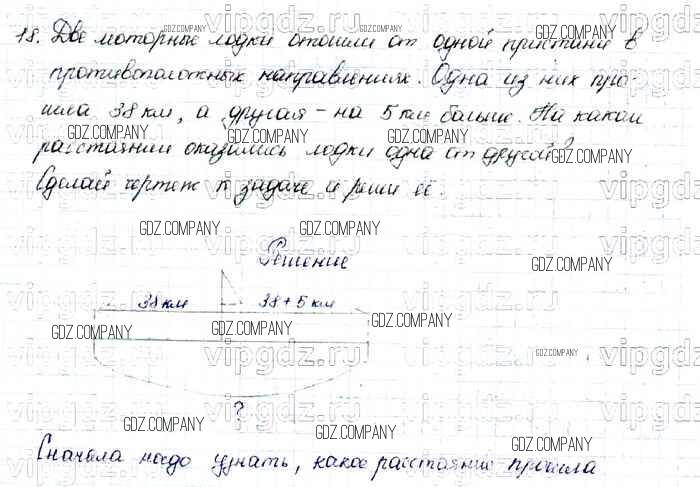 18. Две моторные лодки отошли от одной пристани в
противоположных направлениях. Одна из них про-
шла 38 км, а другая - на 5 км больше. На каком
расстоянии оказались лодки одна от другой?
Сделай чертеж к задаче и реши её.
Решение
38 км 38 + 5 км
?
Сначала надо узнать, какое расстояние прошла
GDZ.COMPANY
vipgdz.ru